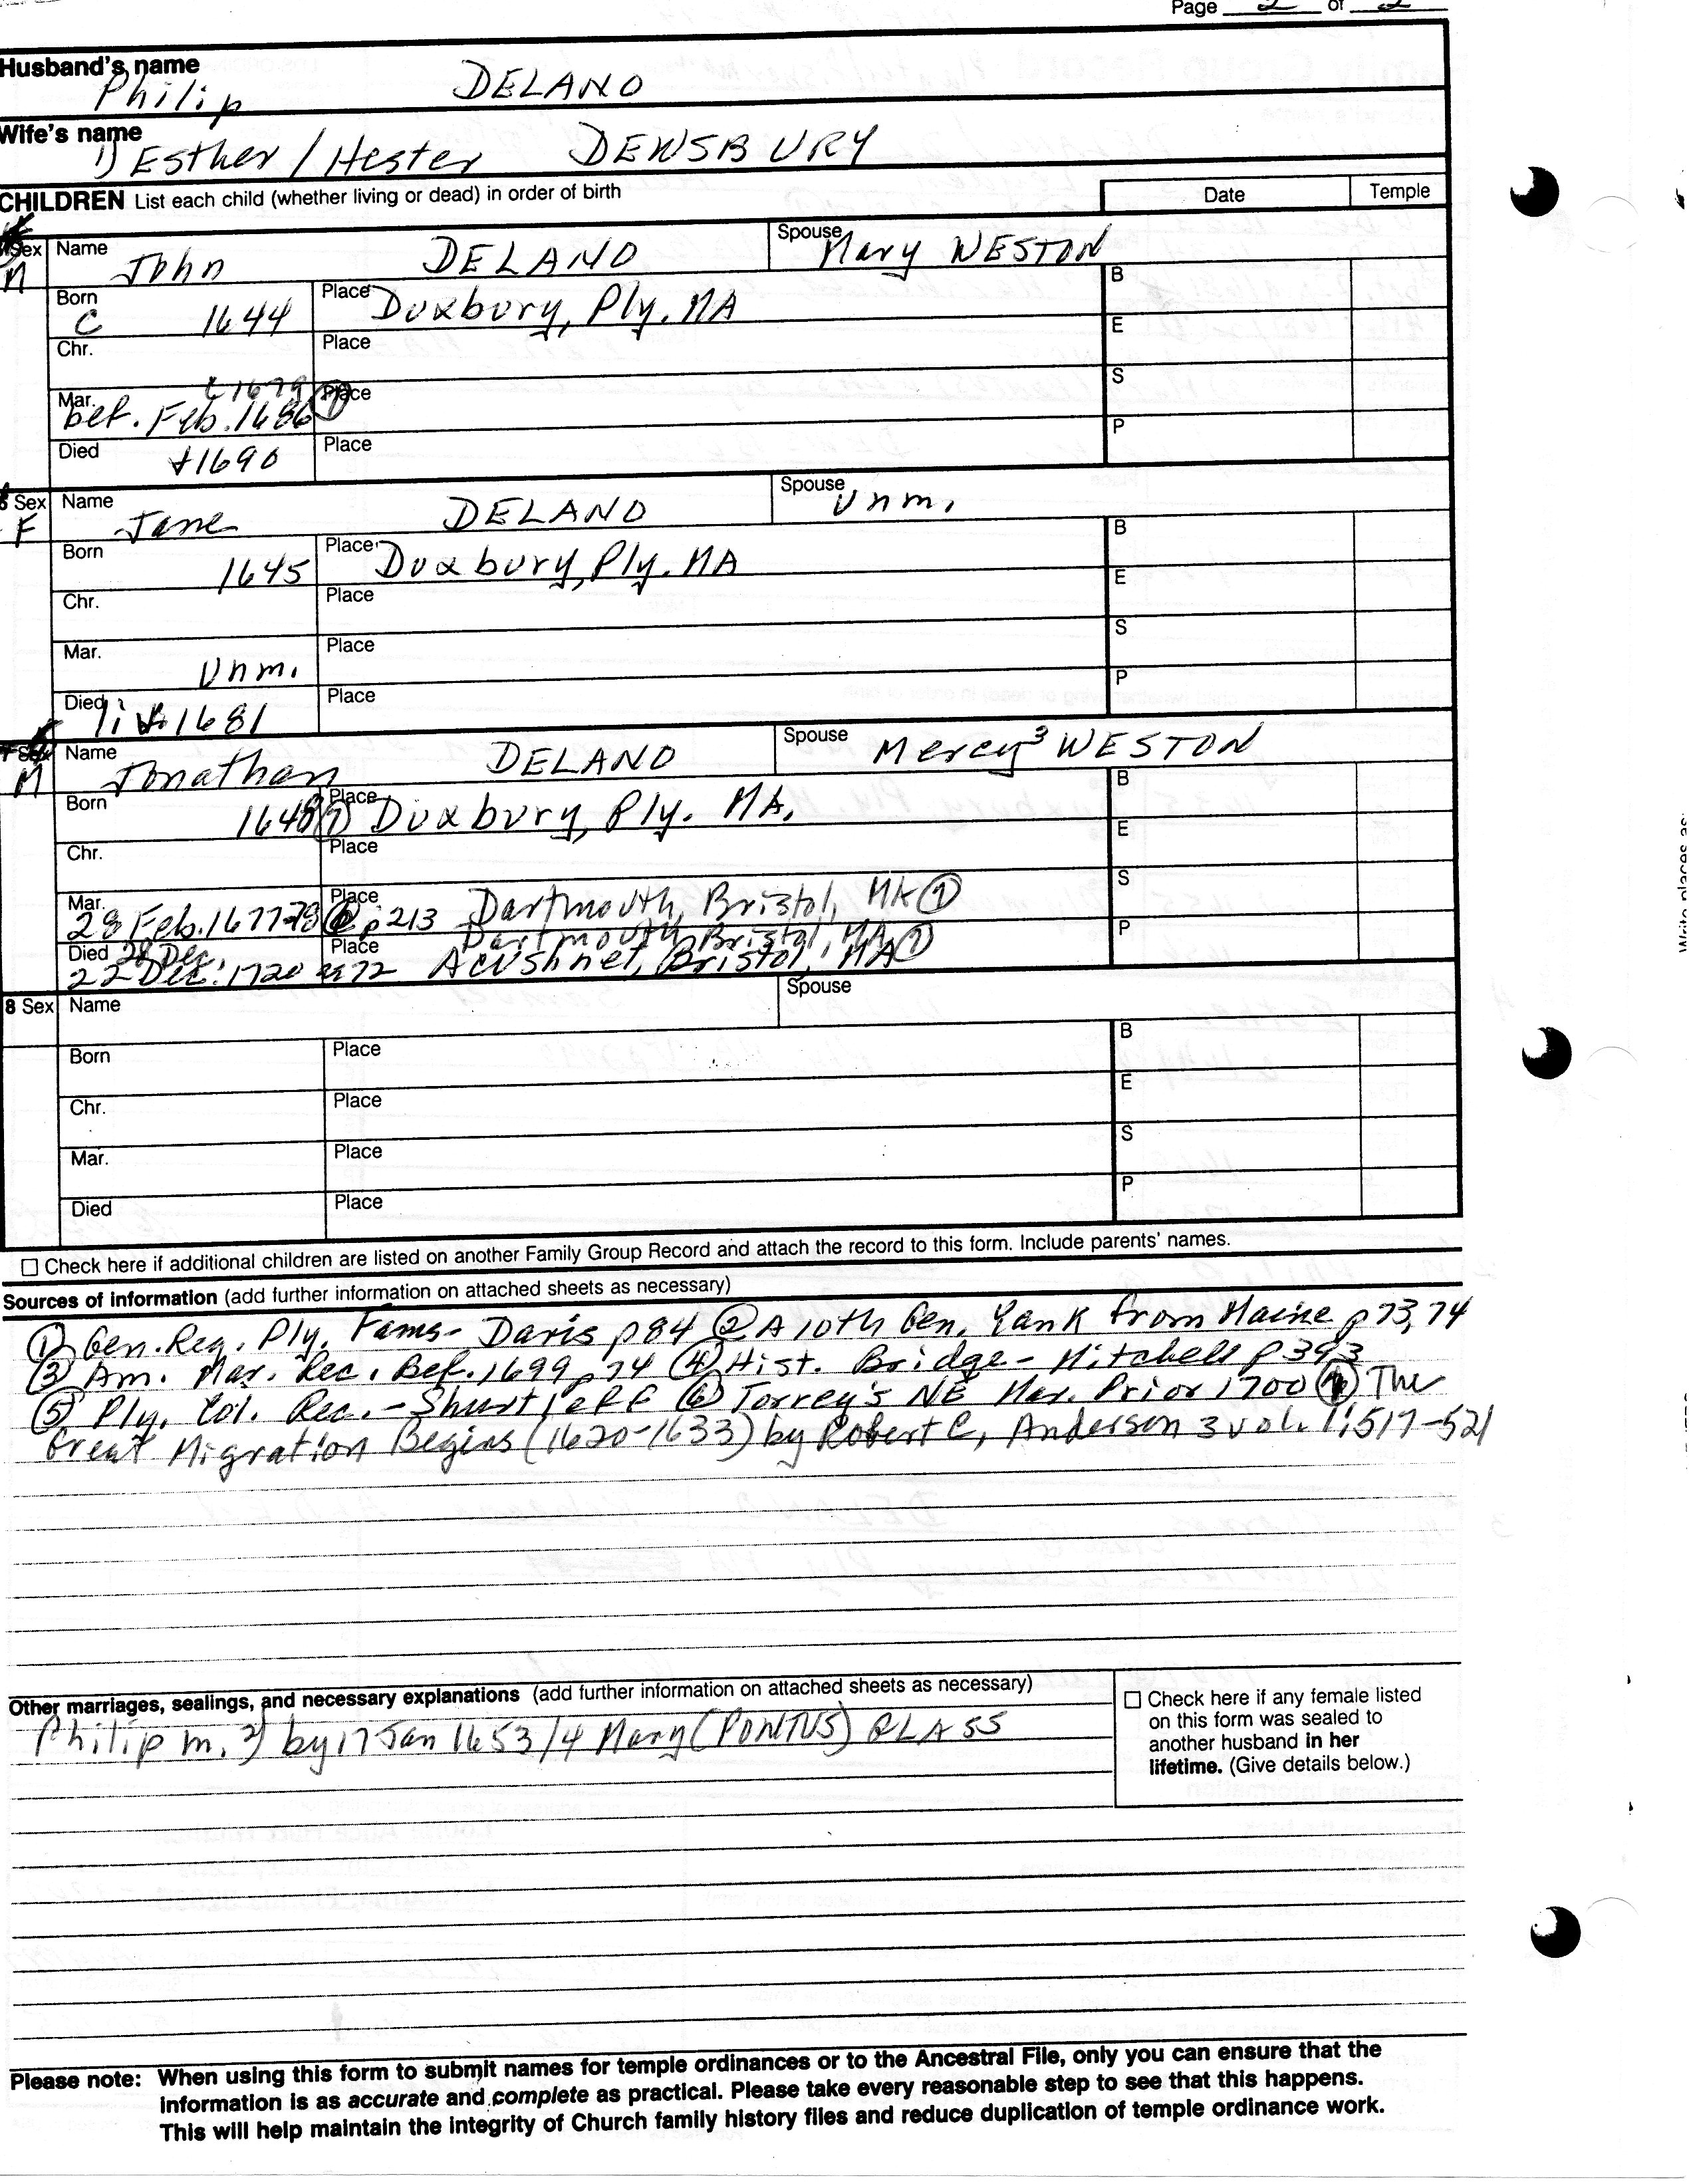 Page 2 of 2
Husband's name
Philip DELANO
Wife's name
1) Esther / Hester DEWSBURY
CHILDREN List each child (whether living or dead) in order of birth Date Temple
Sex Name John DELANO Spouse Mary WESTON
M
Born C 1644 Place Duxbury, Ply. MA B
Chr. Place E
c 1679
Mar. bef. Feb. 1686 ① Place S
Died +1690 Place P
6 Sex Name Jane DELANO Spouse Unm.
F
Born 1645 Place Duxbury, Ply. MA B
Chr. Place E
Mar. Unm. Place S
Died liv. 1681 Place P
7 Sex Name Jonathan DELANO Spouse Mercy³ WESTON
M
Born 1648 ⑦ Place Duxbury, Ply. MA. B
Chr. Place E
Mar. 28 Feb. 1677-78 p213 Place Dartmouth, Bristol, MA ⑦ S
Died 28 Dec. Place Dartmouth, Bristol, MA ⑦ P
22 Dec. 1720 æ 72 Acushnet, Bristol, MA
8 Sex Name Spouse
Born Place B
Chr. Place E
Mar. Place S
Died Place P
☐ Check here if additional children are listed on another Family Group Record and attach the record to this form. Include parents' names.
Sources of information (add further information on attached sheets as necessary)
① Gen. Reg. Ply. Fams- Davis p84 ② A 10th Gen. Yank from Maine p73,74
③ Am. Mar. Rec. Bef. 1699 p74 ④ Hist. Bridge- Mitchell p393
⑤ Ply. Col. Rec. - Shurtleff ⑥ Torrey's NE Mar. Prior 1700 ⑦ The
Great Migration Begins (1620-1633) by Robert C. Anderson 3 vol. 1:517-521
Other marriages, sealings, and necessary explanations (add further information on attached sheets as necessary)
Philip m. 2) by 17 Jan 1653/4 Mary (PONTUS) GLASS
☐ Check here if any female listed
on this form was sealed to
another husband in her
lifetime. (Give details below.)
Please note: When using this form to submit names for temple ordinances or to the Ancestral File, only you can ensure that the
information is as accurate and complete as practical. Please take every reasonable step to see that this happens.
This will help maintain the integrity of Church family history files and reduce duplication of temple ordinance work.
Write places as: